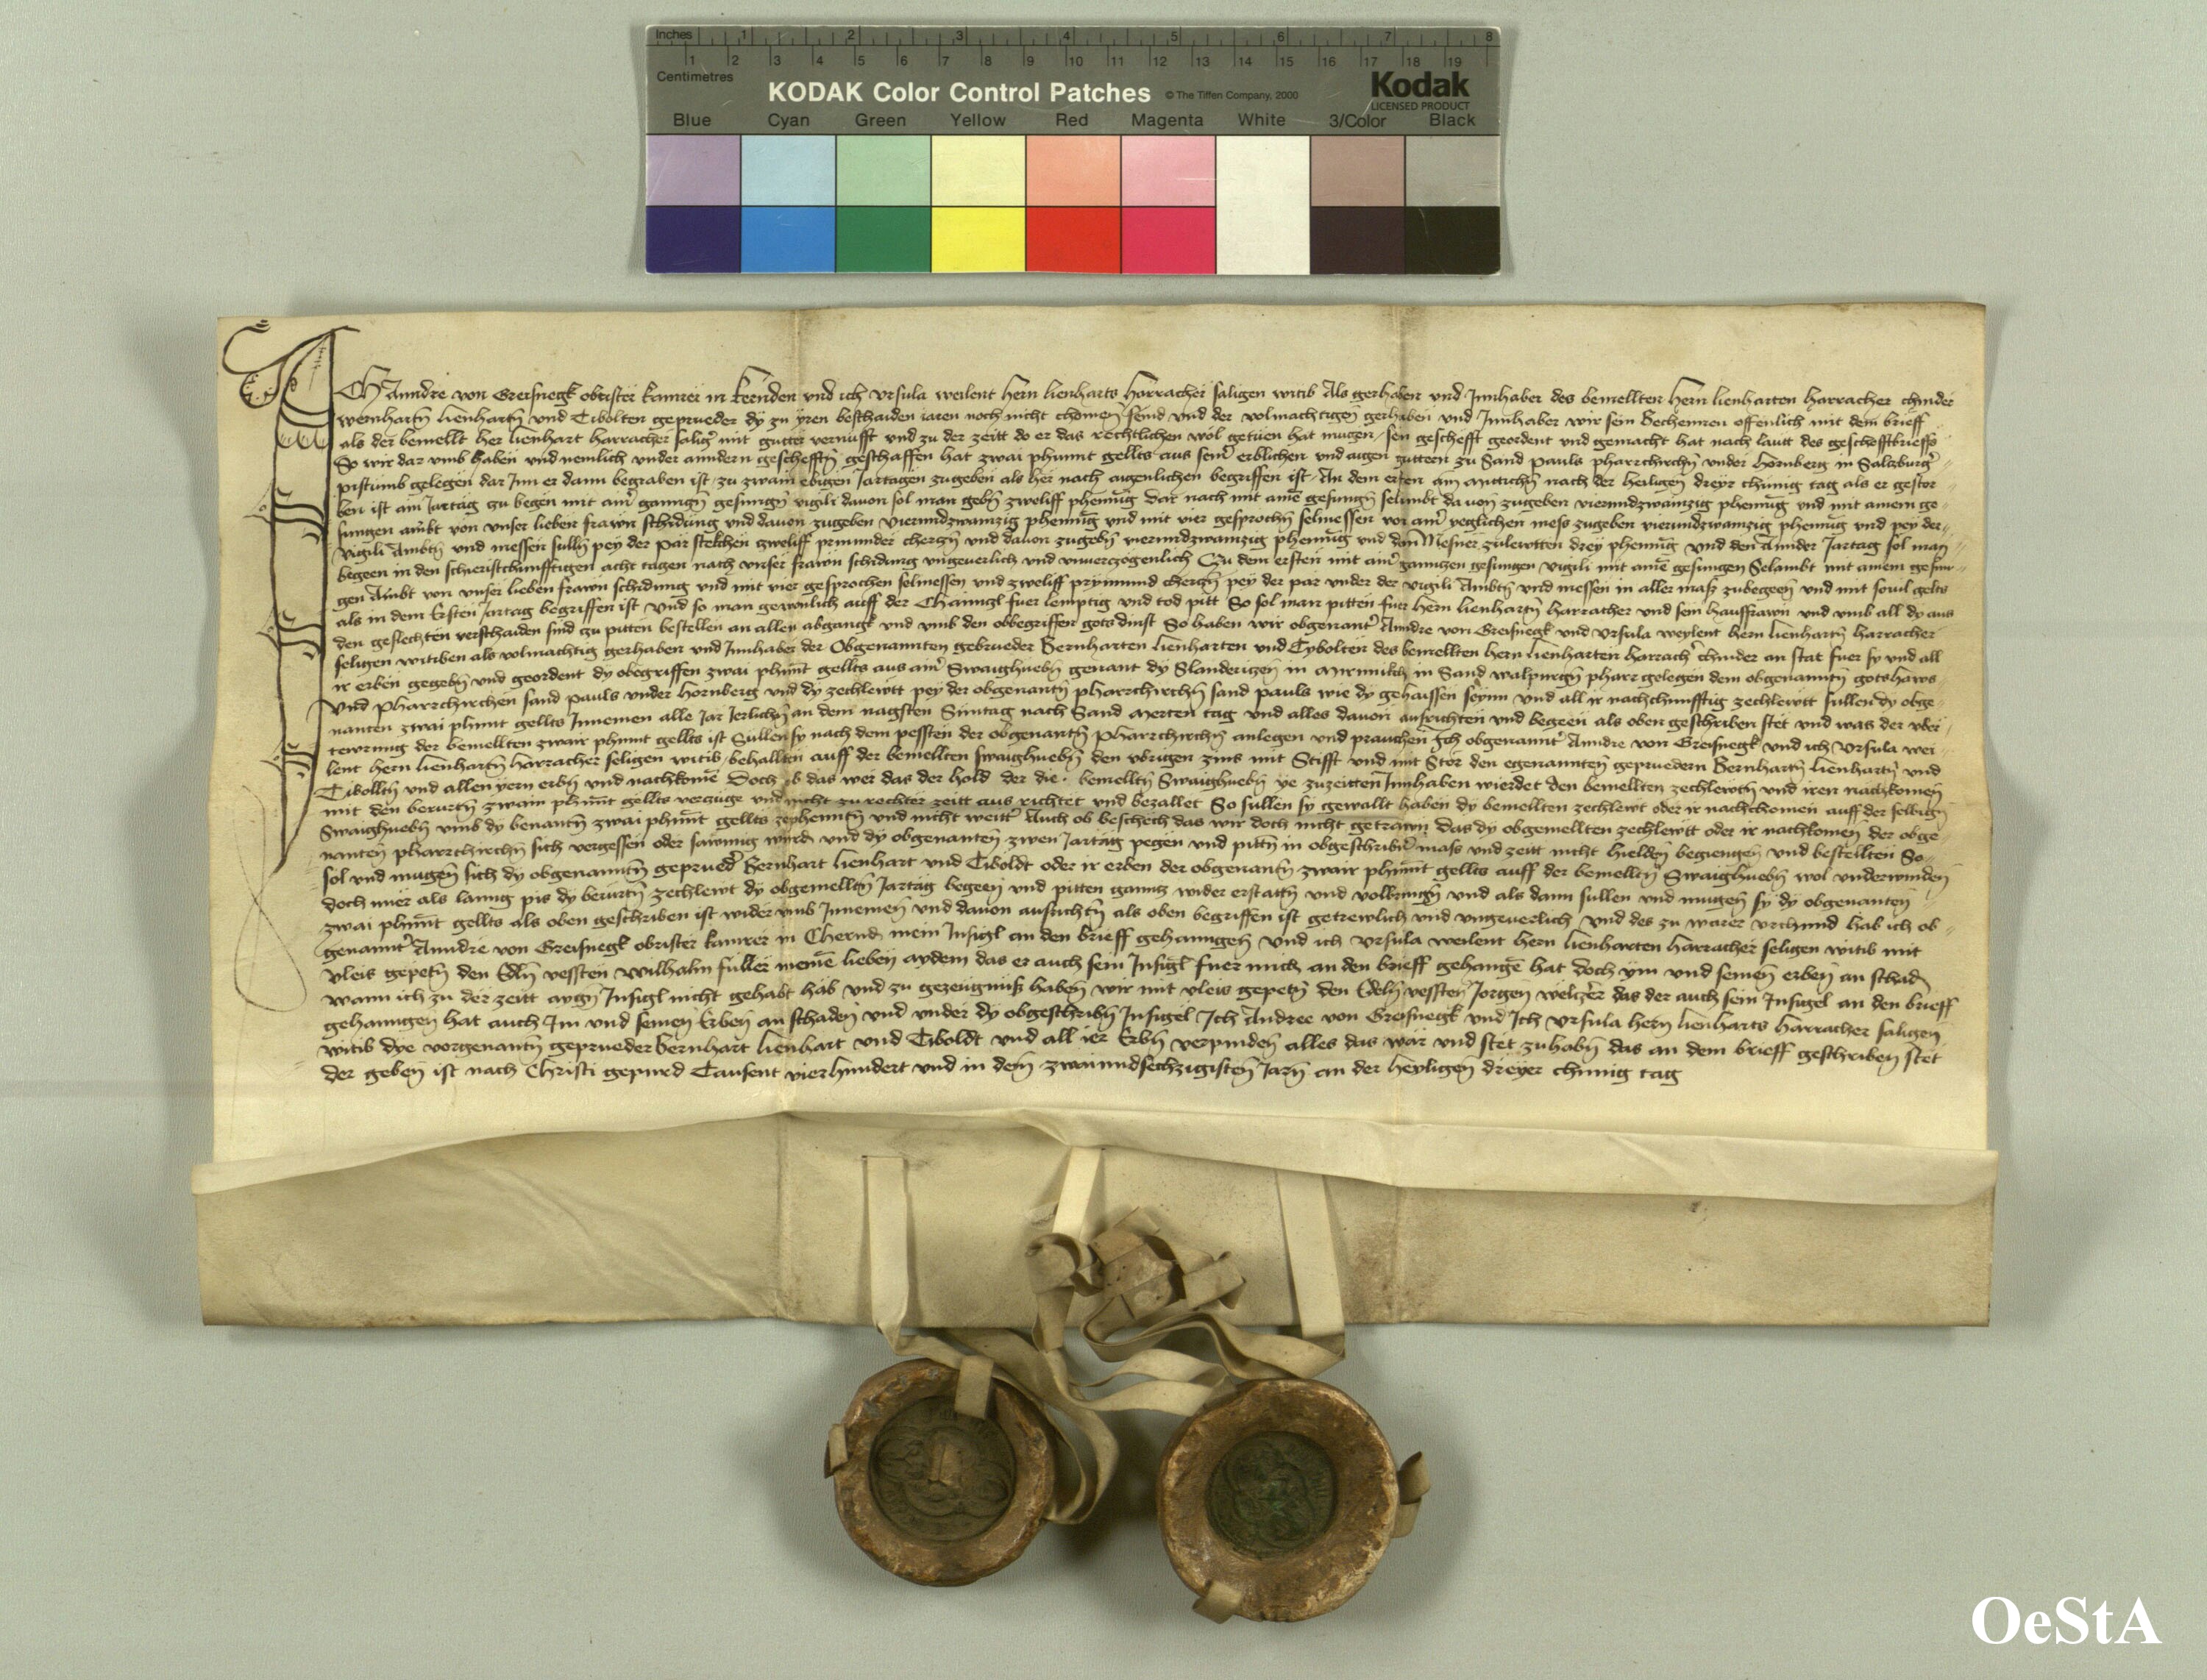 Inches 1 2 3 4 5 6 7 8
1 2 3 4 5 6 7 8 9 10 11 12 13 14 15 16 17 18 19
Centimetres
KODAK Color Control Patches © The Tiffen Company, 2000 Kodak
LICENSED PRODUCT
Blue Cyan Green Yellow Red Magenta White 3/Color Black
ICH Anndre von Greisnegk obrister kamrer in kernden vnd ich vrsula weilent hern lienharts harracher saligen witib Als gerhaben vnd Innhaber des bemellten hern lienharten harracher chinder
wernhartn lienhartn vnd Tibolten geprueder dy zu yren beschaiden iaren noch nicht chomen send vnd der volmachtigen gerhaben vnd Innhaber wir sein Bechennen offenlich mit dem brieff
als der bemellt her lienhart harracher salig mit gutter vernufft vnd zu der zeitt do er das rechtlichen wol getuen hat mugen sein geschefft geordent vnd gemacht hat nach lautt des gescheffbrieffs
So wir dar vmb haben vnd nemlich vnder anndern geschefftn geschaffen hat zwai phunt gellts aus sein erblichen vnd aigen guttern zu Sand pauls pharrchirchn vnder hornberg in Salzburg
pistumb gelegen dar Inn er dann begraben ist zu zwain ebigen Jartagen zugeben als her nach aigenlichen begriffen ist An dem ersten am mittichn nach der heiligen dreyr chunig tag als er gestor
ben ist ain Jartag zu begen mit ainr ganntzn gesungn vigili dauon sol man gebn zweliff phennig Dar nach mit ame gesungn selambt dauon zugeben vierundzwanzig phennig vnd mit ainem ge
sungen ambt von vnser lieben frawn schidung vnd dauon zugeben vierundzwannzig phennig vnd mit vier gesprochn selmessen von ainr yeglichen mess zugeben vierundzwanzig phennig vnd pey der
vigili Ambtn vnd messen sulln pey der par stekchen zweliff prinunder cherzn vnd dauon zugebn vierundzwanzig phennig vnd den Mesner zulewtten drey phennig vnd den Annder Jartag sol man
begeen in den schieristchunfftigen acht tagen nach vnser frawn schidung vngeuerlich vnd vnuerzogenlich Zu dem ersten mit ainr ganntzen gesungen vigili mit ame gesungen Selambt mit ainem gesun
gen Ambt von vnser lieben frawn schidung vnd mit vier gesprochen selmessen vnd zweliff prynnund cherzn pey der par vnder der vigili Ambtn vnd messen in aller mass zubegeen vnd mit souil gelts
als in dem Ersten Jartag begriffen ist vnd so man gewonlich auff der Channtzl fuer lemptig vnd tod pitt So sol man pitten fuer hern lienhartn harracher vnd sein hausfrawn vnd vmb all dy aus
den geslechten verschaiden sind zu pitten bestellen an allen abgangk vnd vmb den obbegriffen gotsdinst So haben wir obgenant Anndre von Greisnegk vnd vrsula weylent hern lienhartn harracher
seligen witiben als volmachtig gerhaben vnd Innhaber der Obgenannten gebrueder Bernharten lienharten vnd Tybolten des bemellten hern lienharten harrachr chinder an stat fuer sy vnd all
ir erben gegebn vnd geordent dy obegriffen zwai phunt gellts aus ainr Swaighuebn genant dy Slanderizen in in Sand walpurgn pharr gelegen dem obgenannten gotshaws
vnd pharrchirchen sand pauls vnder hornberg vnd dy zechlewtt pey der obgenantn pharrchirchn sand pauls wie dy gehaissen seinn vnd all ir nachchunfftig zechlewtt sullen dy obge
nanten zwai phunt gellts Innemen alle Jar Jerlichn an dem nagsten Suntag nach Sand merten tag vnd alles dauon ausrichten vnd begeen als oben geschriben stet vnd was der vber
tewrung der bemellten zwair phunt gellts ist Sullen sy nach dem pessten der obgenantn pharrchirchn anlegen vnd prauchen Ich obgenannt Anndre von Greisnegk vnd ich vrsula wei
lent hern lienhartn harracher seligen witib behallten auff der bemellten swaighuebn den vbrigen zins mit Stifft vnd mit Stor den egenannten gepruedern Bernhartn lienhartn vnd
Tibolltn vnd allen yern erbn vnd nachkome Doch ob das wer das der hold der die bemelltn Swaighuebn ye zuzeitten Innhaben wierdet den bemellten zechlewtn vnd iren nachkomen
mit den berurtn zwain phunt gellts verzuge vnd nicht zu rechter zeitt aus richtet vnd bezallet So sullen sy gewallt haben dy bemellten zechlewt oder ir nachchomen auff der selbign
Swaighuebn vmb dy benantn zwai phunt gellts zephenntn vnd nicht weitr Auch ob beschech das wir doch nicht getrawn das dy obgemellten zechlewtt oder ir nachkomen der obge
nanten pharrchirchn sich vergessen oder sawmig wurdn vnd dy obgenanten zwen Jartag pegen vnd pittn in obgeschribnr mass vnd zeitt nicht hielden begiengen vnd bestellten So
sol vnd mugen sich dy obgenanntn gepruedr Bernhart lienhart vnd Tiboldt oder ir erben der obgenantn zwair phunt gellts auff der bemellten Swaighuebn wol vnderwinden
doch nuer als lanng pis dy berurtn zechlewt dy obgemelltn Jartag begeen vnd pitten ganntz wider erstattn vnd volbringn vnd als dann sullen vnd mugen sy dy obgenanten
zwai phunt gellts als oben geschriben ist wider vmb Innemen vnd dauon ausrichtn als oben begriffen ist getrewlich vnd vngeuerlich vnd des zu warer vrchund hab ich ob
genannt Anndre von Greisnegk obrister kamrer in Chernd mein Insigl an den brieff gehanngen vnd ich vrsula weilent hern lienharten harracher seligen witib mit
vleis gepetn den Edln vessten wilhalm fuller meine lieben aydem das er auch sein Insigl fuer mich an den brieff gehange hat doch ym vnd seinen erben an schadn
wann ich zu der zeitt aygn Insigl nicht gehabt hab vnd zu gezeugnuss haben wir mit vleis gepetn den Edeln vessten Jorgen welczer das der auch sein Insigel an den brieff
gehanngen hat auch Im vnd seinen Erben an schaden vnd vnder dy obgeschribn Insigel Ich Andree von Greisnegk vnd Ich vrsula hern lienharts harracher saligen
witib dye vorgenantn geprueder Bernhart lienhart vnd Tiboldt vnd all ier Erbn verpinden alles das war vnd stet zuhabn das an dem brieff geschriben stet
der geben ist nach Christi gepurd Tausent vierhundert vnd in dem zwaiundsechzigisten Jarn an der heyligen dreyer chunig tag
OeStA